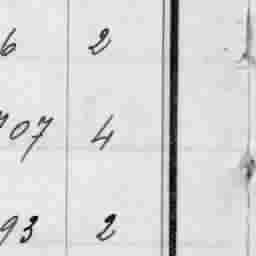 6 2
707 4
93 2